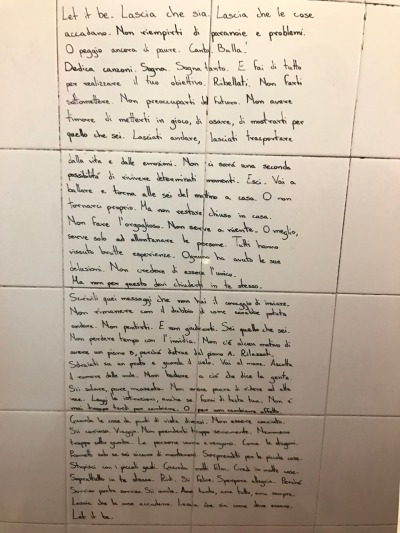 Let it be. Lascia che sia. Lascia che le cose
accadano. Non riempirti di paranoie e problemi.
O peggio ancora di paure. Canta. Balla!
Dedica canzoni. Sogna. Sogna tanto. E fai di tutto
per realizzare il tuo obiettivo. Ribellati. Non farti
sottomettere. Non preoccuparti del futuro. Non avere
timore di metterti in gioco, di osare, di mostrarti per
quello che sei. Lasciati andare, lasciati trasportare
dalla vita e dalle emozioni. Non ci sarà una seconda
possibilità di rivivere determinati momenti. Esci. Vai a
ballare e torna alle sei del mattino a casa. O non
tornarci proprio. Ma non restare chiuso in casa.
Non fare l'orgoglioso. Non serve a niente. O meglio,
serve solo ad allontanare le persone. Tutti hanno
vissuto brutte esperienze. Ognuno ha avuto le sue
delusioni. Non credere di essere l'unico.
Ma non per questo devi chiuderti in te stesso.
Scrivili quei messaggi che non hai il coraggio di inviare.
Non rimanere con il dubbio di come sarebbe potuta
andare. Non pentirti. E non giudicarti. Sei quello che sei.
Non perdere tempo con l'invidia. Non c'è alcun motivo di
avere un piano B, perché dietro del piano A. Rilassati.
Sdraiati su un prato e guarda il cielo. Vai al mare. Ascolta
il rumore delle onde. Non badare a ciò che dice la gente.
Sii solare, pure, incasinato. Non avere paura di ridere ad alta
voce. Leggi le istruzioni, anche se farai di testa tua. Non è
mai troppo tardi per cambiare. O per non cambiare affatto.
Guarda le cose da punti di vista diversi. Non essere scontato.
Sii curioso. Viaggia. Non prenderti troppo seriamente. Nemmeno
troppo alla giusta. Le persone vanno e vengono. Come le stagioni.
Prometti solo se sei sicuro di mantenere. Sorprenditi per le piccole cose.
Stupisci con i piccoli gesti. Guarda molti film. Credi in molte cose.
Soprattutto in te stesso. Ridi. Sii felice. Sprigiona allegria. Perché
Sorriso porta sorriso. Sii umile. Ama tanto, ama tutto, ama sempre.
Lascia che le cose accadano. Lascia che sia come deve essere.
Let it be.